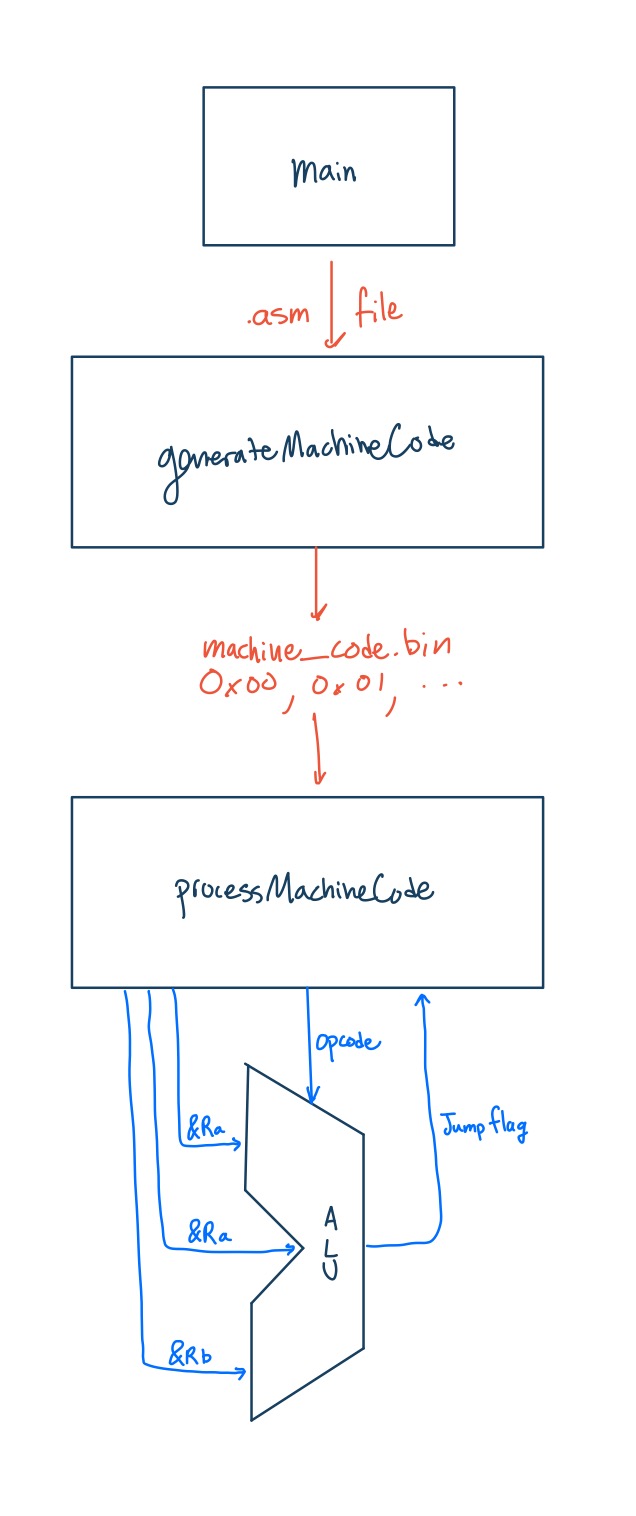 Main
.asm file
generateMachineCode
machine_code.bin
0x00, 0x01, ...
processMachineCode
Opcode
&Ra
Jump flag
&Ra
A
L
U
&Rb